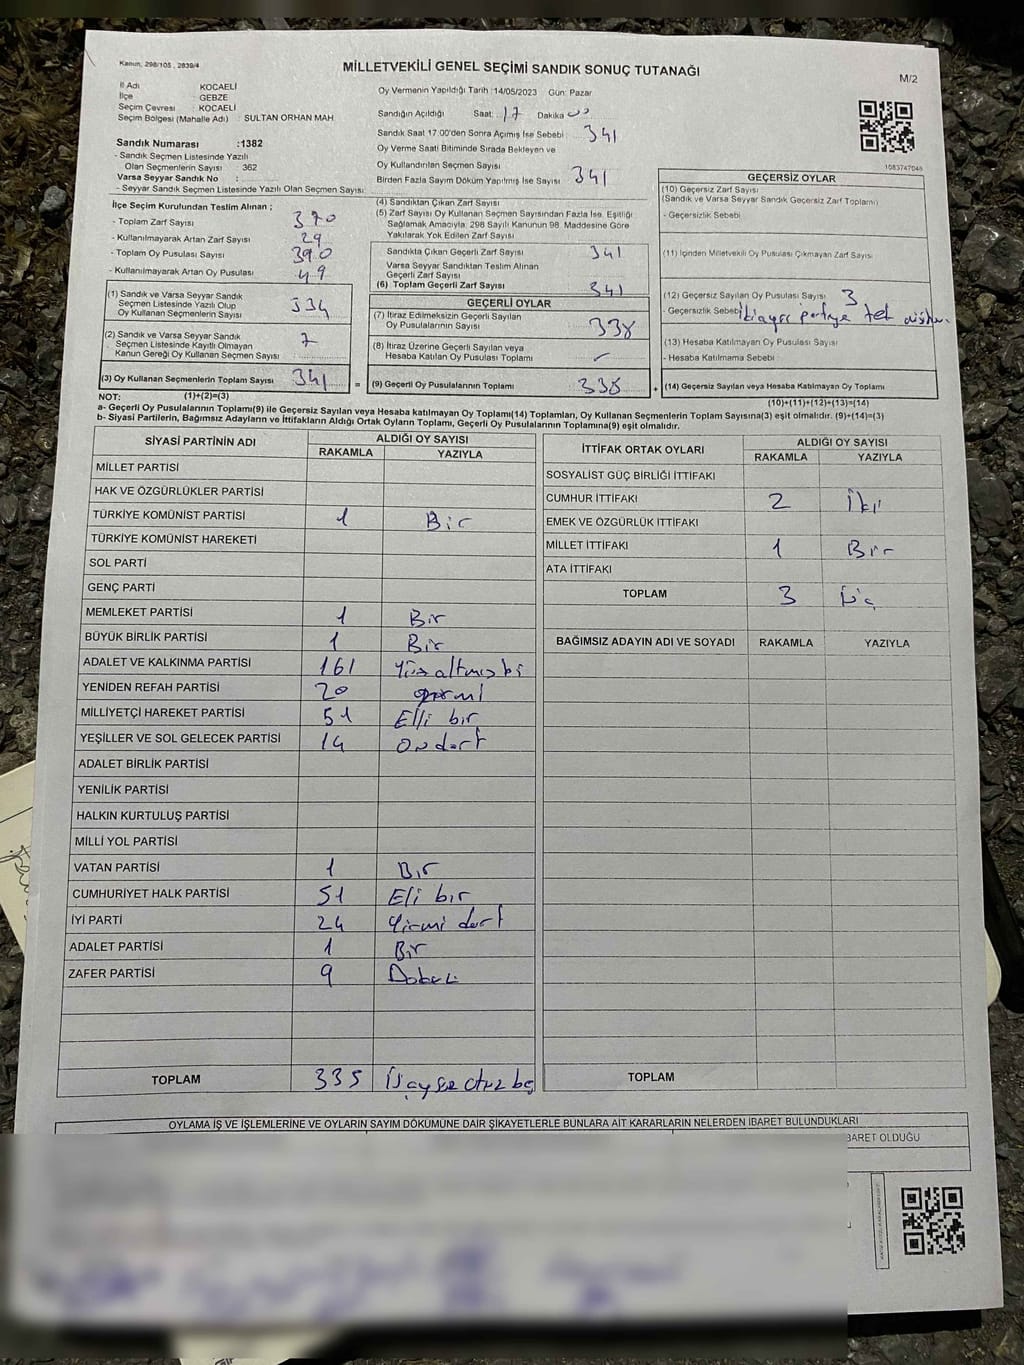 Kanun, 298/105 , 2839/4
MİLLETVEKİLİ GENEL SEÇİMİ SANDIK SONUÇ TUTANAĞI
M/2
İl Adı KOCAELİ
İlçe : GEBZE
Seçim Çevresi : KOCAELİ
Seçim Bölgesi (Mahalle Adı) : SULTAN ORHAN MAH.
Oy Vermenin Yapıldığı Tarih :14/05/2023 Gün: Pazar
Sandığın Açıldığı Saat: 17 Dakika 00
Sandık Saat 17.00'den Sonra Açımış İse Sebebi : 341
Oy Verme Saati Bitiminde Sırada Bekleyen ve
Oy Kullandırılan Seçmen Sayısı
Birden Fazla Sayım Döküm Yapılmış İse Sayısı 341
1083747048
Sandık Numarası :1382
- Sandık Seçmen Listesinde Yazılı
Olan Seçmenlerin Sayısı : 362
Varsa Seyyar Sandık No :
- Seyyar Sandık Seçmen Listesinde Yazılı Olan Seçmen Sayısı:
İlçe Seçim Kurulundan Teslim Alınan ;
- Toplam Zarf Sayısı 370
- Kullanılmayarak Artan Zarf Sayısı 29
- Toplam Oy Pusulası Sayısı 390
- Kullanılmayarak Artan Oy Pusulası 49
(1) Sandık ve Varsa Seyyar Sandık
Seçmen Listesinde Yazılı Olup
Oy Kullanan Seçmenlerin Sayısı 334
(2) Sandık ve Varsa Seyyar Sandık
Seçmen Listesinde Kayıtlı Olmayan
Kanun Gereği Oy Kullanan Seçmen Sayısı 7
(3) Oy Kullanan Seçmenlerin Toplam Sayısı 341 =
(1)+(2)=(3)
(4) Sandıktan Çıkan Zarf Sayısı
(5) Zarf Sayısı Oy Kullanan Seçmen Sayısından Fazla İse, Eşitliği
Sağlamak Amacıyla, 298 Sayılı Kanunun 98. Maddesine Göre
Yakılarak Yok Edilen Zarf Sayısı
Sandıkta Çıkan Geçerli Zarf Sayısı 341
Varsa Seyyar Sandıktan Teslim Alınan
Geçerli Zarf Sayısı
(6) Toplam Geçerli Zarf Sayısı 341
GEÇERLİ OYLAR
(7) İtiraz Edilmeksizin Geçerli Sayılan
Oy Pusulalarının Sayısı 338
(8) İtiraz Üzerine Geçerli Sayılan veya
Hesaba Katılan Oy Pusulası Toplamı
(9) Geçerli Oy Pusulalarının Toplamı 338 +
GEÇERSİZ OYLAR
(10) Geçersiz Zarf Sayısı
(Sandık ve Varsa Seyyar Sandık Geçersiz Zarf Toplamı)
- Geçersizlik Sebebi
(11) İçinden Milletvekili Oy Pusulası Çıkmayan Zarf Sayısı
(12) Geçersiz Sayılan Oy Pusulası Sayısı 3
- Geçersizlik Sebebi
(13) Hesaba Katılmayan Oy Pusulası Sayısı
- Hesaba Katılmama Sebebi
(14) Geçersiz Sayılan veya Hesaba Katılmayan Oy Toplamı
(10)+(11)+(12)+(13)=(14)
NOT:
a- Geçerli Oy Pusulalarının Toplamı(9) ile Geçersiz Sayılan veya Hesaba katılmayan Oy Toplamı(14) Toplamları, Oy Kullanan Seçmenlerin Toplam Sayısına(3) eşit olmalıdır. (9)+(14)=(3)
b- Siyasi Partilerin, Bağımsız Adayların ve İttifakların Aldığı Ortak Oyların Toplamı, Geçerli Oy Pusulalarının Toplamına(9) eşit olmalıdır.
SİYASİ PARTİNİN ADI ALDIĞI OY SAYISI
RAKAMLA YAZIYLA
MİLLET PARTİSİ
HAK VE ÖZGÜRLÜKLER PARTİSİ
TÜRKİYE KOMÜNİST PARTİSİ 1 Bir
TÜRKİYE KOMÜNİST HAREKETİ
SOL PARTİ
GENÇ PARTİ
MEMLEKET PARTİSİ 1 Bir
BÜYÜK BİRLİK PARTİSİ 1 Bir
ADALET VE KALKINMA PARTİSİ 161 Yüz altmış bi
YENİDEN REFAH PARTİSİ 20
MİLLİYETÇİ HAREKET PARTİSİ 51 Elli bir
YEŞİLLER VE SOL GELECEK PARTİSİ 14 On dört
ADALET BİRLİK PARTİSİ
YENİLİK PARTİSİ
HALKIN KURTULUŞ PARTİSİ
MİLLİ YOL PARTİSİ
VATAN PARTİSİ 1 Bir
CUMHURİYET HALK PARTİSİ 51 Eli bir
İYİ PARTİ 24 Yirmi dört
ADALET PARTİSİ 1 Bir
ZAFER PARTİSİ 9
TOPLAM 335
İTTİFAK ORTAK OYLARI ALDIĞI OY SAYISI
RAKAMLA YAZIYLA
SOSYALİST GÜÇ BİRLİĞİ İTTİFAKI
CUMHUR İTTİFAKI 2 İki
EMEK VE ÖZGÜRLÜK İTTİFAKI
MİLLET İTTİFAKI 1 Bir
ATA İTTİFAKI
TOPLAM 3 Üç
BAĞIMSIZ ADAYIN ADI VE SOYADI RAKAMLA YAZIYLA
TOPLAM
OYLAMA İŞ VE İŞLEMLERİNE VE OYLARIN SAYIM DÖKÜMÜNE DAİR ŞİKAYETLERLE BUNLARA AİT KARARLARIN NELERDEN İBARET BULUNDUKLARI
BARET OLDUĞU